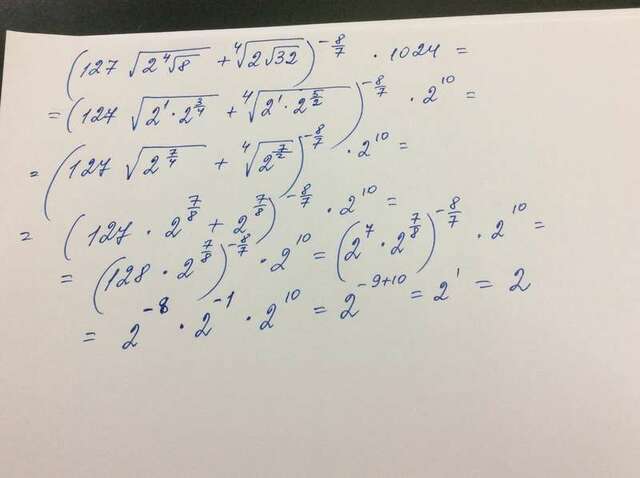 (127 √(2 ⁴√8) + ⁴√(2√32))^(-8/7) · 1024 =
= (127 √(2¹ · 2^(3/4)) + ⁴√(2¹ · 2^(5/2)))^(-8/7) · 2^10 =
= (127 √(2^(7/4)) + ⁴√(2^(7/2)))^(-8/7) · 2^10 =
= (127 · 2^(7/8) + 2^(7/8))^(-8/7) · 2^10 =
= (128 · 2^(7/8))^(-8/7) · 2^10 = (2^7 · 2^(7/8))^(-8/7) · 2^10 =
= 2^-8 · 2^-1 · 2^10 = 2^(-9+10) = 2¹ = 2